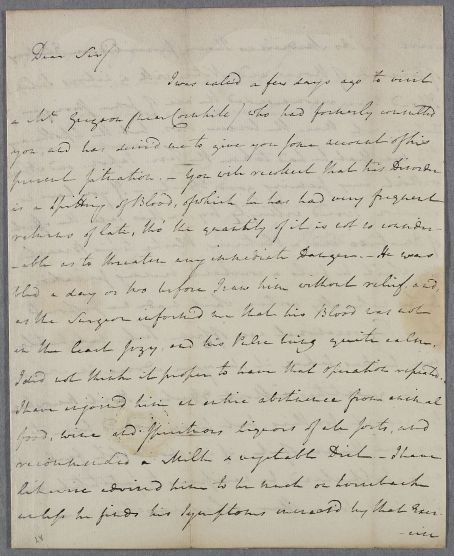 Dear Sir
I was called a few days ago to visit
a Mr. (near Cornhill) who had formerly consulted
you, and has desired me to give you some account of his
present Situation. – You will recollect that his Disorder
is a Spitting of Blood, of which he has had very frequent
returns of late, tho' the quantity of it is not so consider-
-able as to threaten any immediate Danger. – He was
bled a day or two before I saw him without relief, and,
as the Surgeon informed me that his Blood was not
in the least sizy, and his Pulse being quite calm,
I did not think it proper to have that operation repeated.
I have enjoined him an entire abstinence from animal
food, wine and Spirituous liquors of all sorts, and
recommended a Milk & vegetable Diet – I have
likewise advised him to be much on horseback
unless he finds his Symptoms increased by that Exer-
-cise